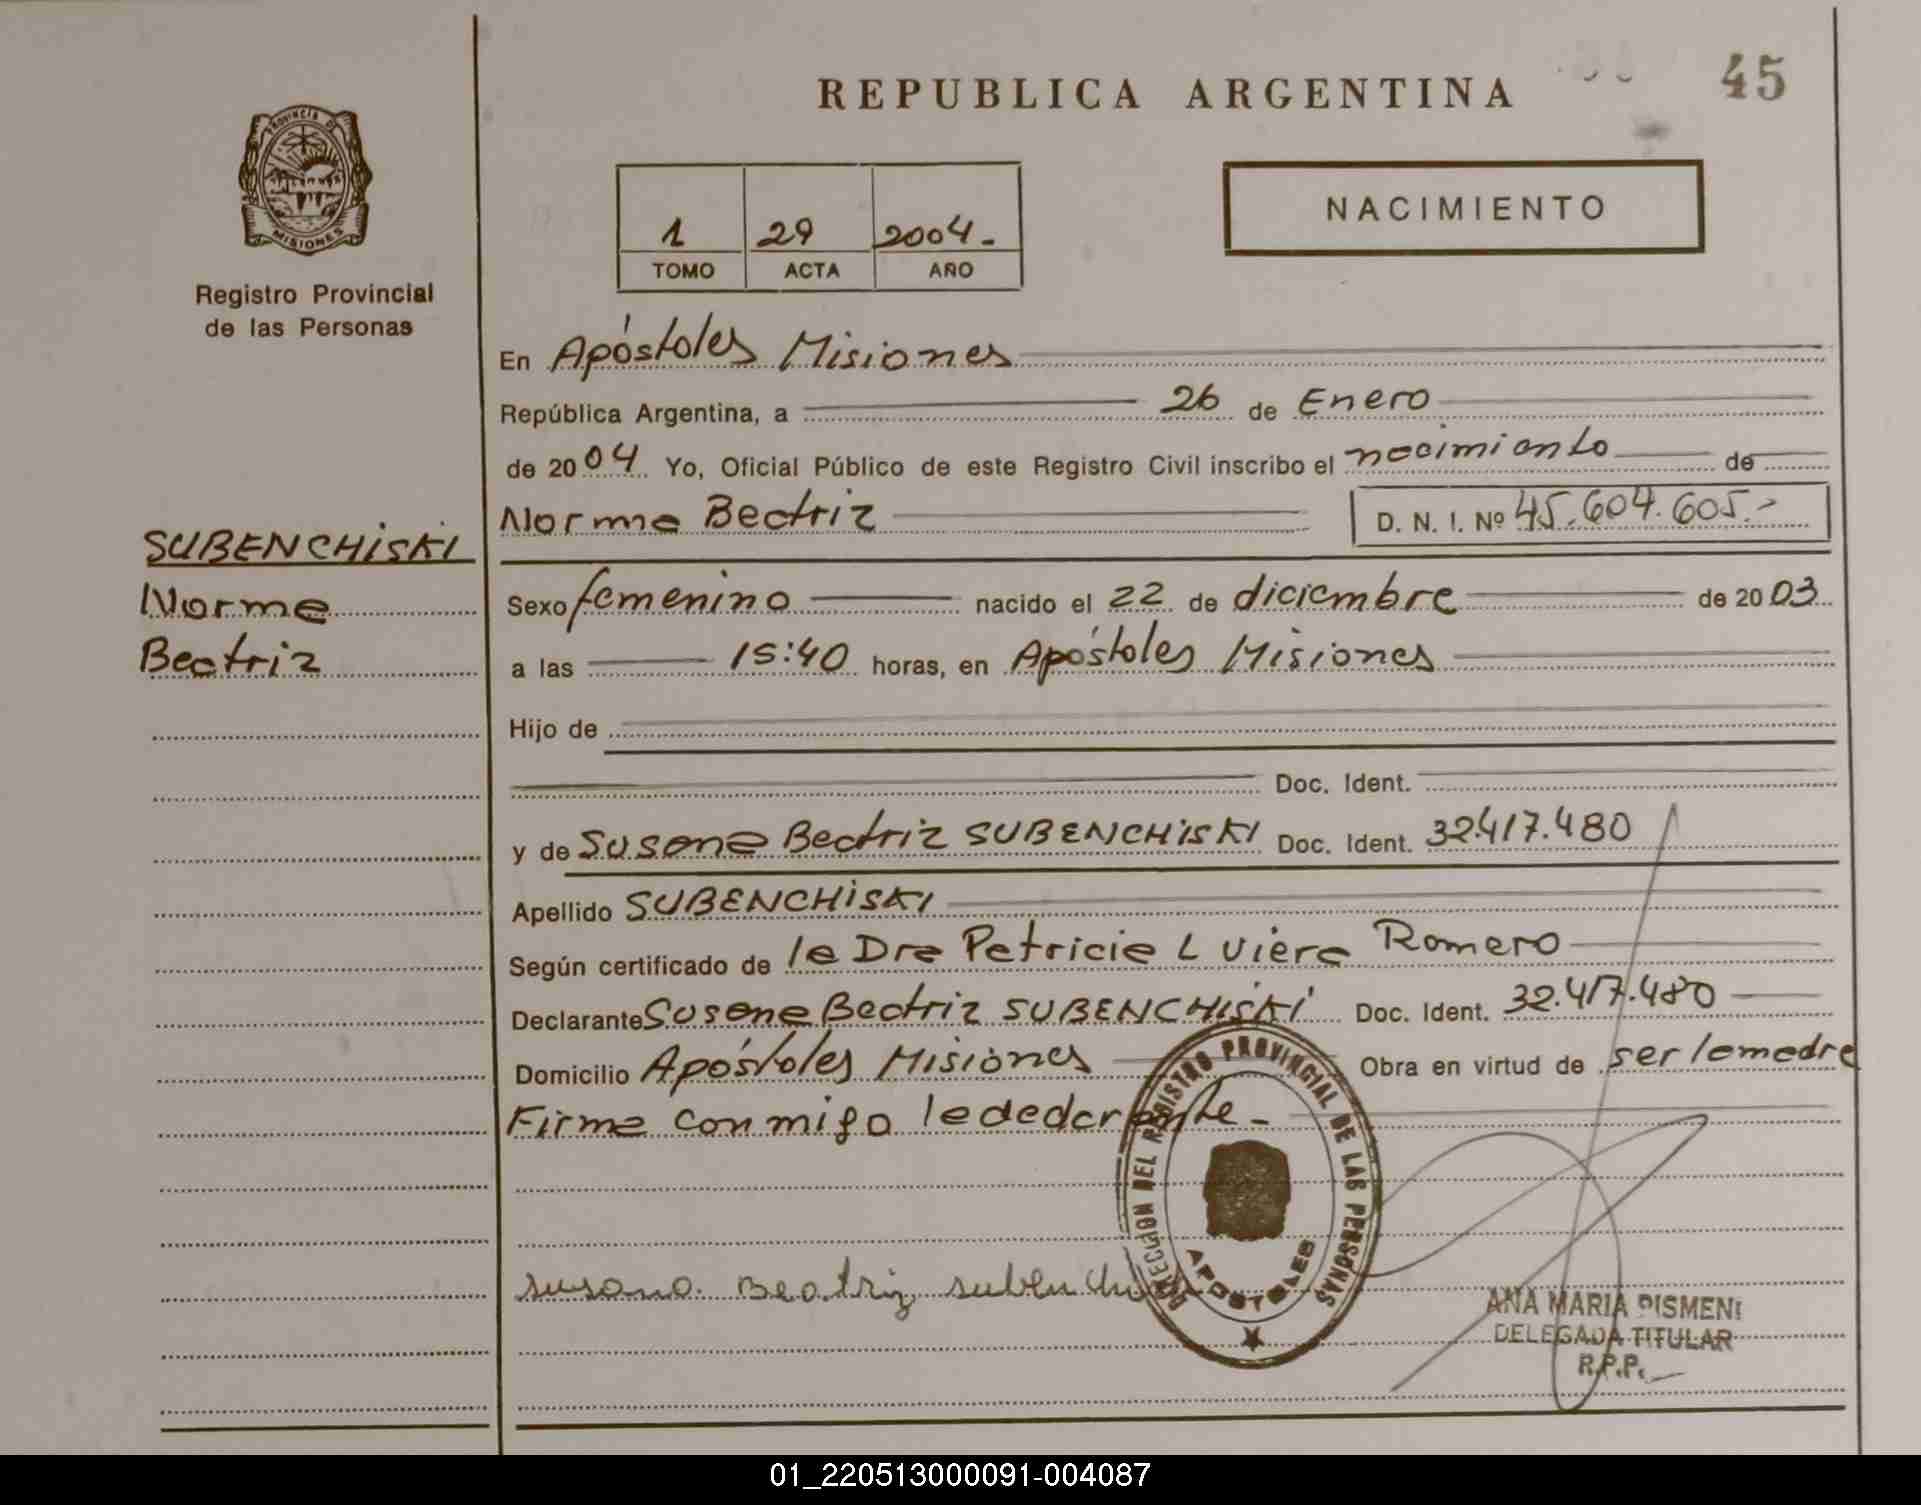 REPUBLICA ARGENTINA
45
PROVINCIA DE
MISIONES
Registro Provincial
de las Personas
1 29 2004.-
TOMO ACTA AÑO
NACIMIENTO
En Apóstoles Misiones
República Argentina, a 26 de Enero
de 2004 Yo, Oficial Público de este Registro Civil inscribo el nacimiento de
Norma Beatriz D. N. I. Nº 45.604.605.-
SUBENCHiSKI
Norma
Beatriz
Sexo femenino nacido el 22 de diciembre de 2003
a las 15:40 horas, en Apóstoles Misiones
Hijo de
Doc. Ident.
y de Susana Beatriz SUBENCHiSKI Doc. Ident. 32.417.480
Apellido SUBENCHiSKI
Según certificado de la Dra Patricia L Viera Romero
Declarante Susana Beatriz SUBENCHiSKi Doc. Ident. 32.417.480
Domicilio Apóstoles Misiones Obra en virtud de ser la madre
Firma conmigo la declarante.-
DIRECCION DEL REGISTRO PROVINCIAL DE LAS PERSONAS
APOSTOLES
susana Beatriz
ANA MARIA PISMENI
DELEGADA TITULAR
R.P.P.
01_220513000091-004087